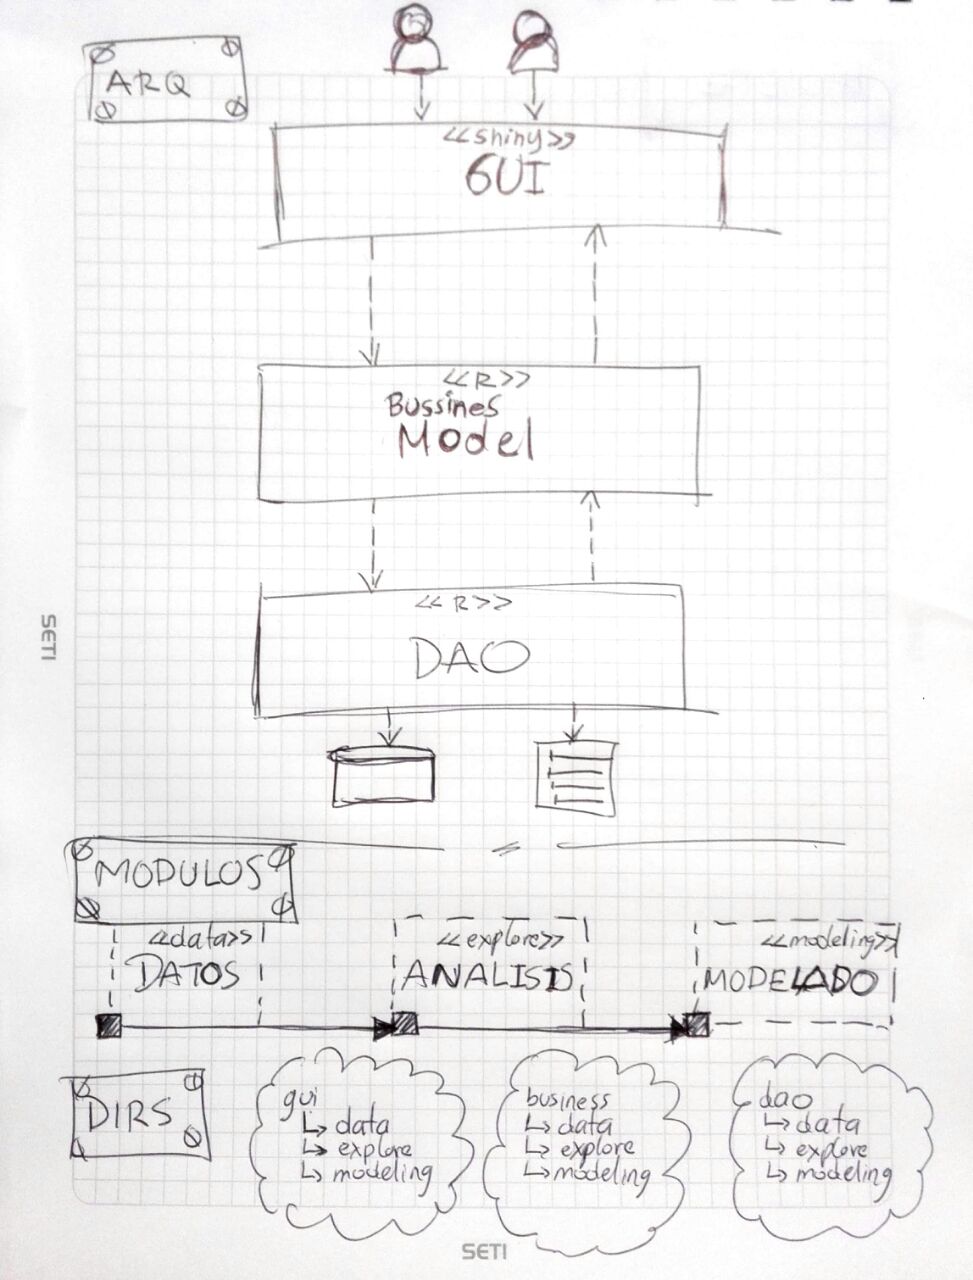 ARQ
<<shiny>>
GUI
<<R>>
Bussines
Model
<<R>>
DAO
SETI
MODULOS
<<data>>
DATOS
<<explore>>
ANALISIS
<<modeling>>
MODELADO
DIRS
gui
↳ data
↳ explore
↳ modeling
business
↳ data
↳ explore
↳ modeling
dao
↳ data
↳ explore
↳ modeling
SETI